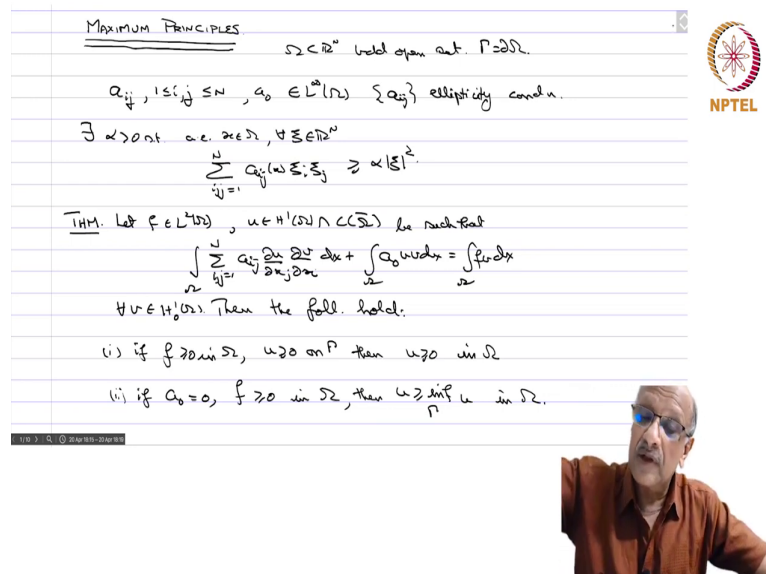 MAXIMUM PRINCIPLES.
Ω ⊂ ℝᴺ bdd open set. Γ = ∂Ω.
a_ij, 1≤i,j ≤N, a₀ ∈ L^∞(Ω) {a_ij} ellipticity condn.
∃ α>0 s.t. a.e. x∈Ω, ∀ ξ∈ℝᴺ
∑_{i,j=1}^N a_ij(x) ξ_i ξ_j ≥ α|ξ|².
THM. Let f ∈ L²(Ω), u ∈ H¹(Ω) ∩ C(Ω̄) be such that
∫_Ω ∑_{i,j=1}^N a_ij ∂u/∂x_j ∂v/∂x_i dx + ∫_Ω a₀uv dx = ∫_Ω fv dx
∀ v ∈ H¹₀(Ω). Then the foll. hold:
(i) if f ≥0 in Ω, u≥0 on Γ then u≥0 in Ω
(ii) if a₀ = 0, f ≥0 in Ω, then u ≥ inf_Γ u in Ω.
NPTEL
1/10
20 Apr 18:15 – 20 Apr 18:19